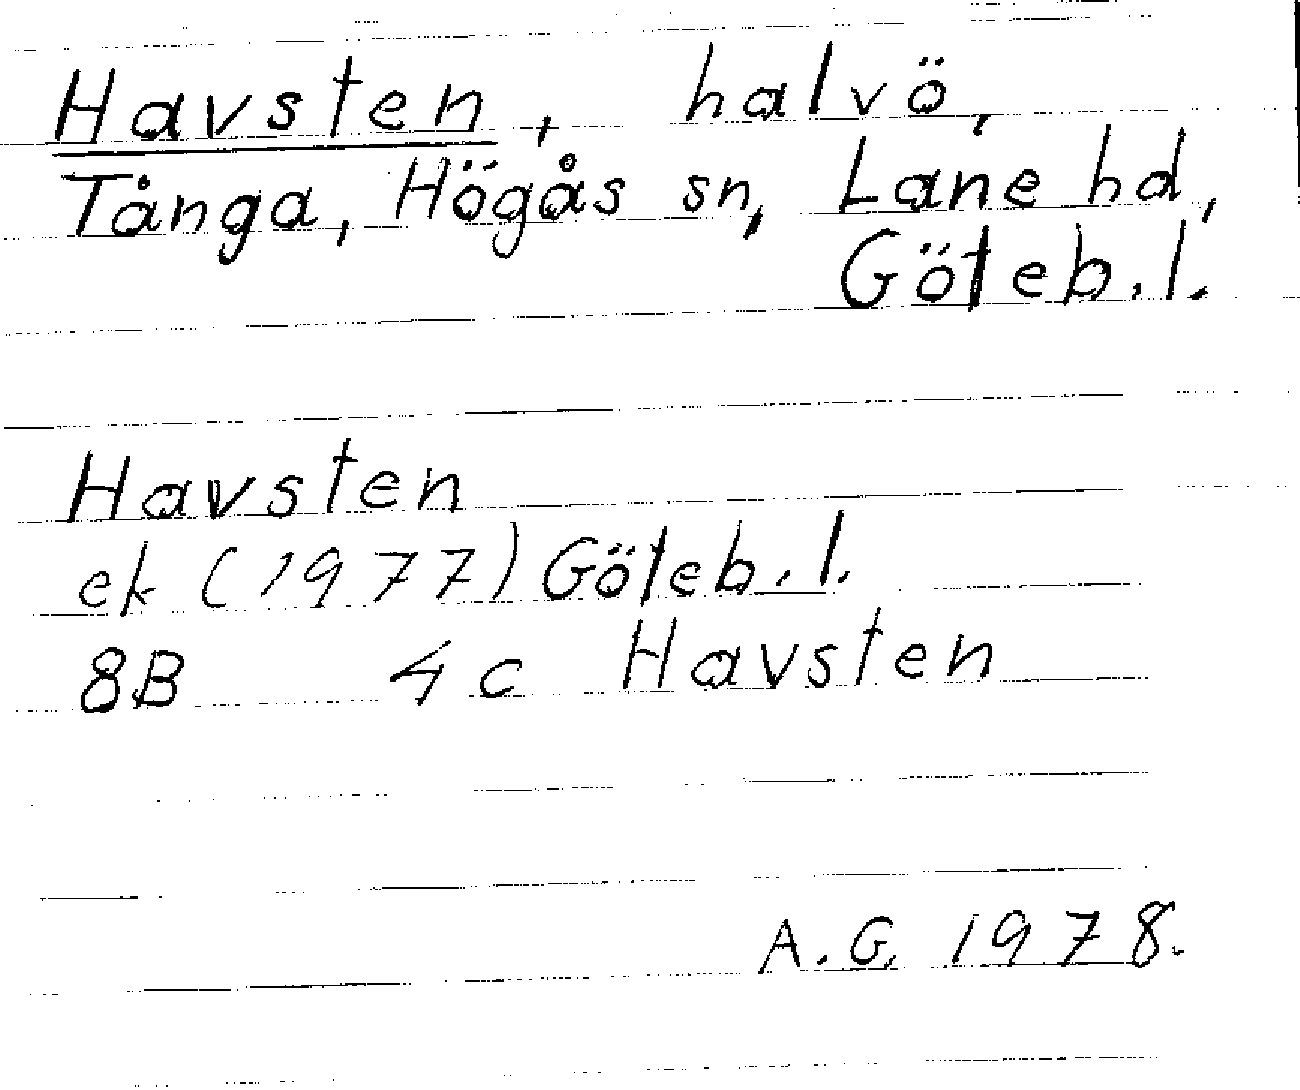 Havsten, halvö,
Tånga, Högås sn, Lane hd,
Göteb. l.
Havsten
ek (1977) Göteb. l.
8B 4c Havsten
A. G. 1978.